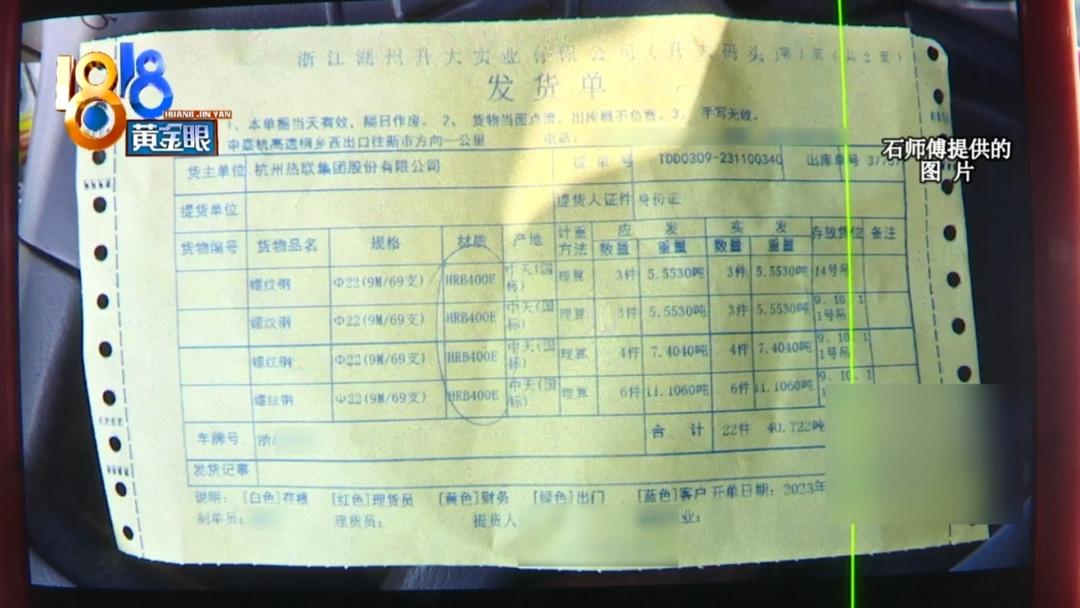 浙江湖州升大实业有限公司(升大码头)第1页(共2页)
发货单
1、本单据当天有效，隔日作废。2、货物当面点清，出库概不负责。3、手写无效。
申嘉杭高速桐乡西出口往新市方向一公里 电话:
1818
HUANG JIN YAN
黄金眼
石师傅提供的
图 片
货主单位 杭州热联集团股份有限公司 提单号 TDD0309-231100340 出库单号
提货单位 提货人证件 身份证
货物编号 货物品名 规格 材质 产地 计重方法 应发 数量 重量 实发 数量 重量 存放货位 备注
螺纹钢 Φ22(9M/69支) HRB400E 中天(国标) 理算 3件 5.5530吨 3件 5.5530吨 14号吊
螺纹钢 Φ22(9M/69支) HRB400E 中天(国标) 理算 3件 5.5530吨 3件 5.5530吨 9、10、11号吊
螺纹钢 Φ22(9M/69支) HRB400E 中天(国标) 理算 4件 7.4040吨 4件 7.4040吨 9、10、11号吊
螺纹钢 Φ22(9M/69支) HRB400E 中天(国标) 理算 6件 11.1060吨 6件 11.1060吨 9、10、1
车牌号 浙 合计 22件 40.722吨
发货记事
说明: [白色]存根 [红色]理货员 [黄色]财务 [绿色]出门 [蓝色]客户 开单日期: 2023年
制单员: 理货员: 提货人 业: